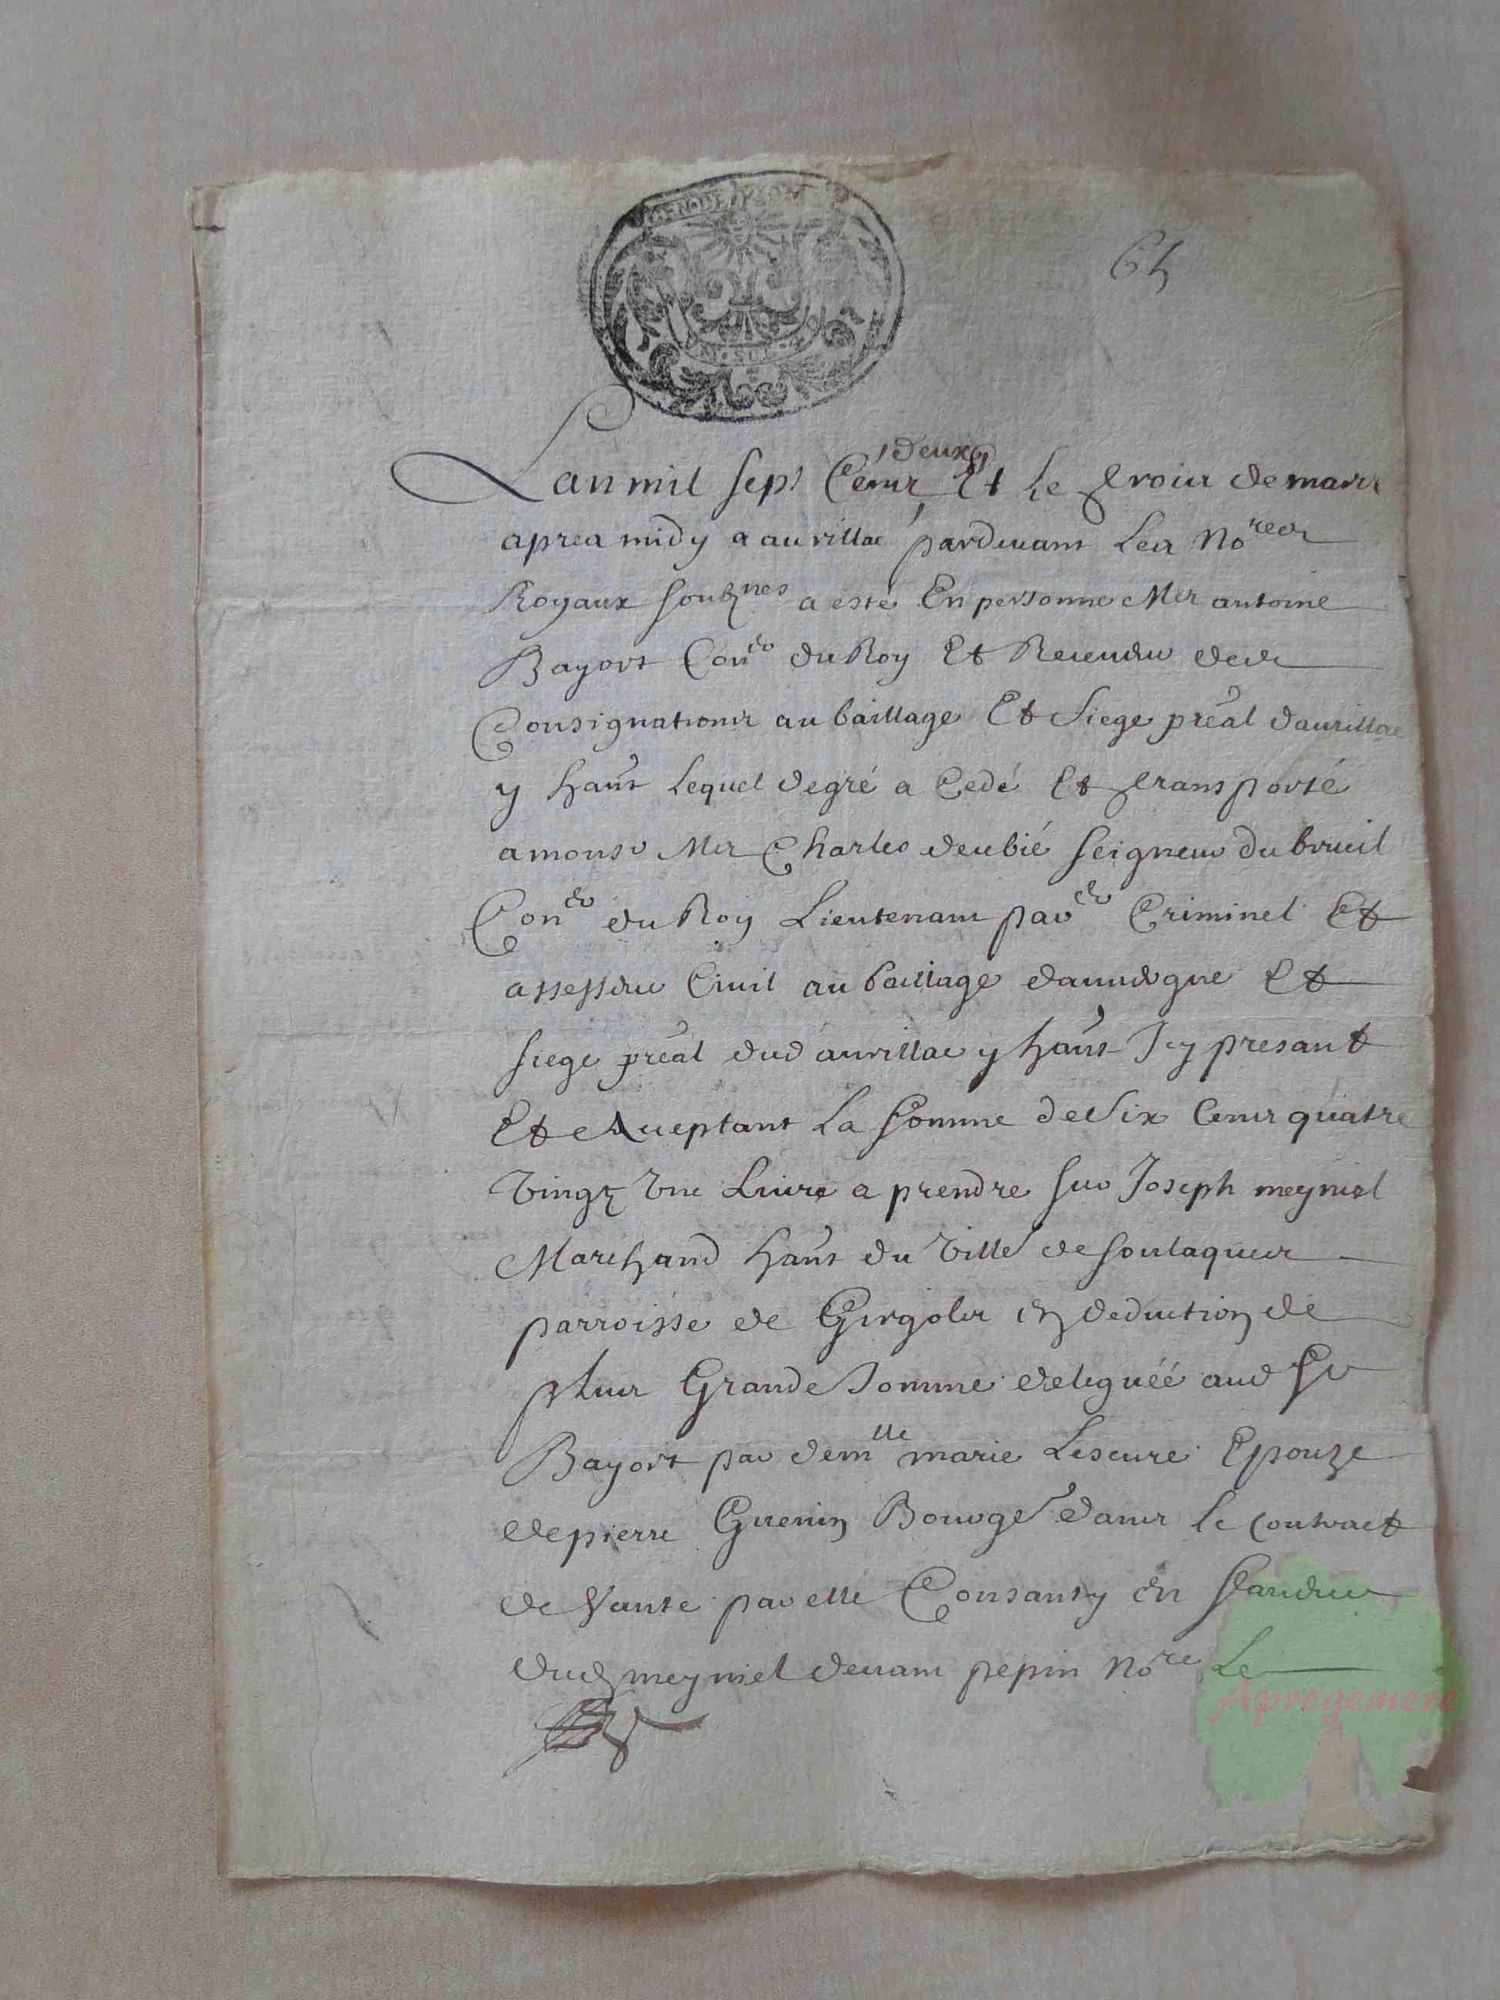 GEN. DE
M. SOL. 4
64
deux
Lan mil sept Cens Et le trois de mars
apres midy a aurillac pardevant Les No.res
Royaux soub.nes a esté En personne Mer antoine
Bayort Con.er du Roy Et Receveur des
Consignations au baillage Et siege préal daurillac
y hant Lequel degré a Cedé Et transporté
a monsr Mer Charles deubié seigneur du bruil
Con.er du Roy Lieutenant par.er Criminel Et
assesseur Civil au baillage dauvergne Et
siege préal dud aurillac y hant Icy presant
Et Aceptant La somme de Six Cens quatre
vingt une Livre a prendre sur Joseph meyniel
Marchand hant du villé de soulaques
parroisse de Girgols En deduction de
plus Grande Somme deleguéé aud Sr
Bayort par dem.lle marie Lescure Epouze
de pierre Guenin Bourgs dans le contract
de Vante par elle Consanty En faveur
dud meyniel devant pepin No.re Le
Aprogemere